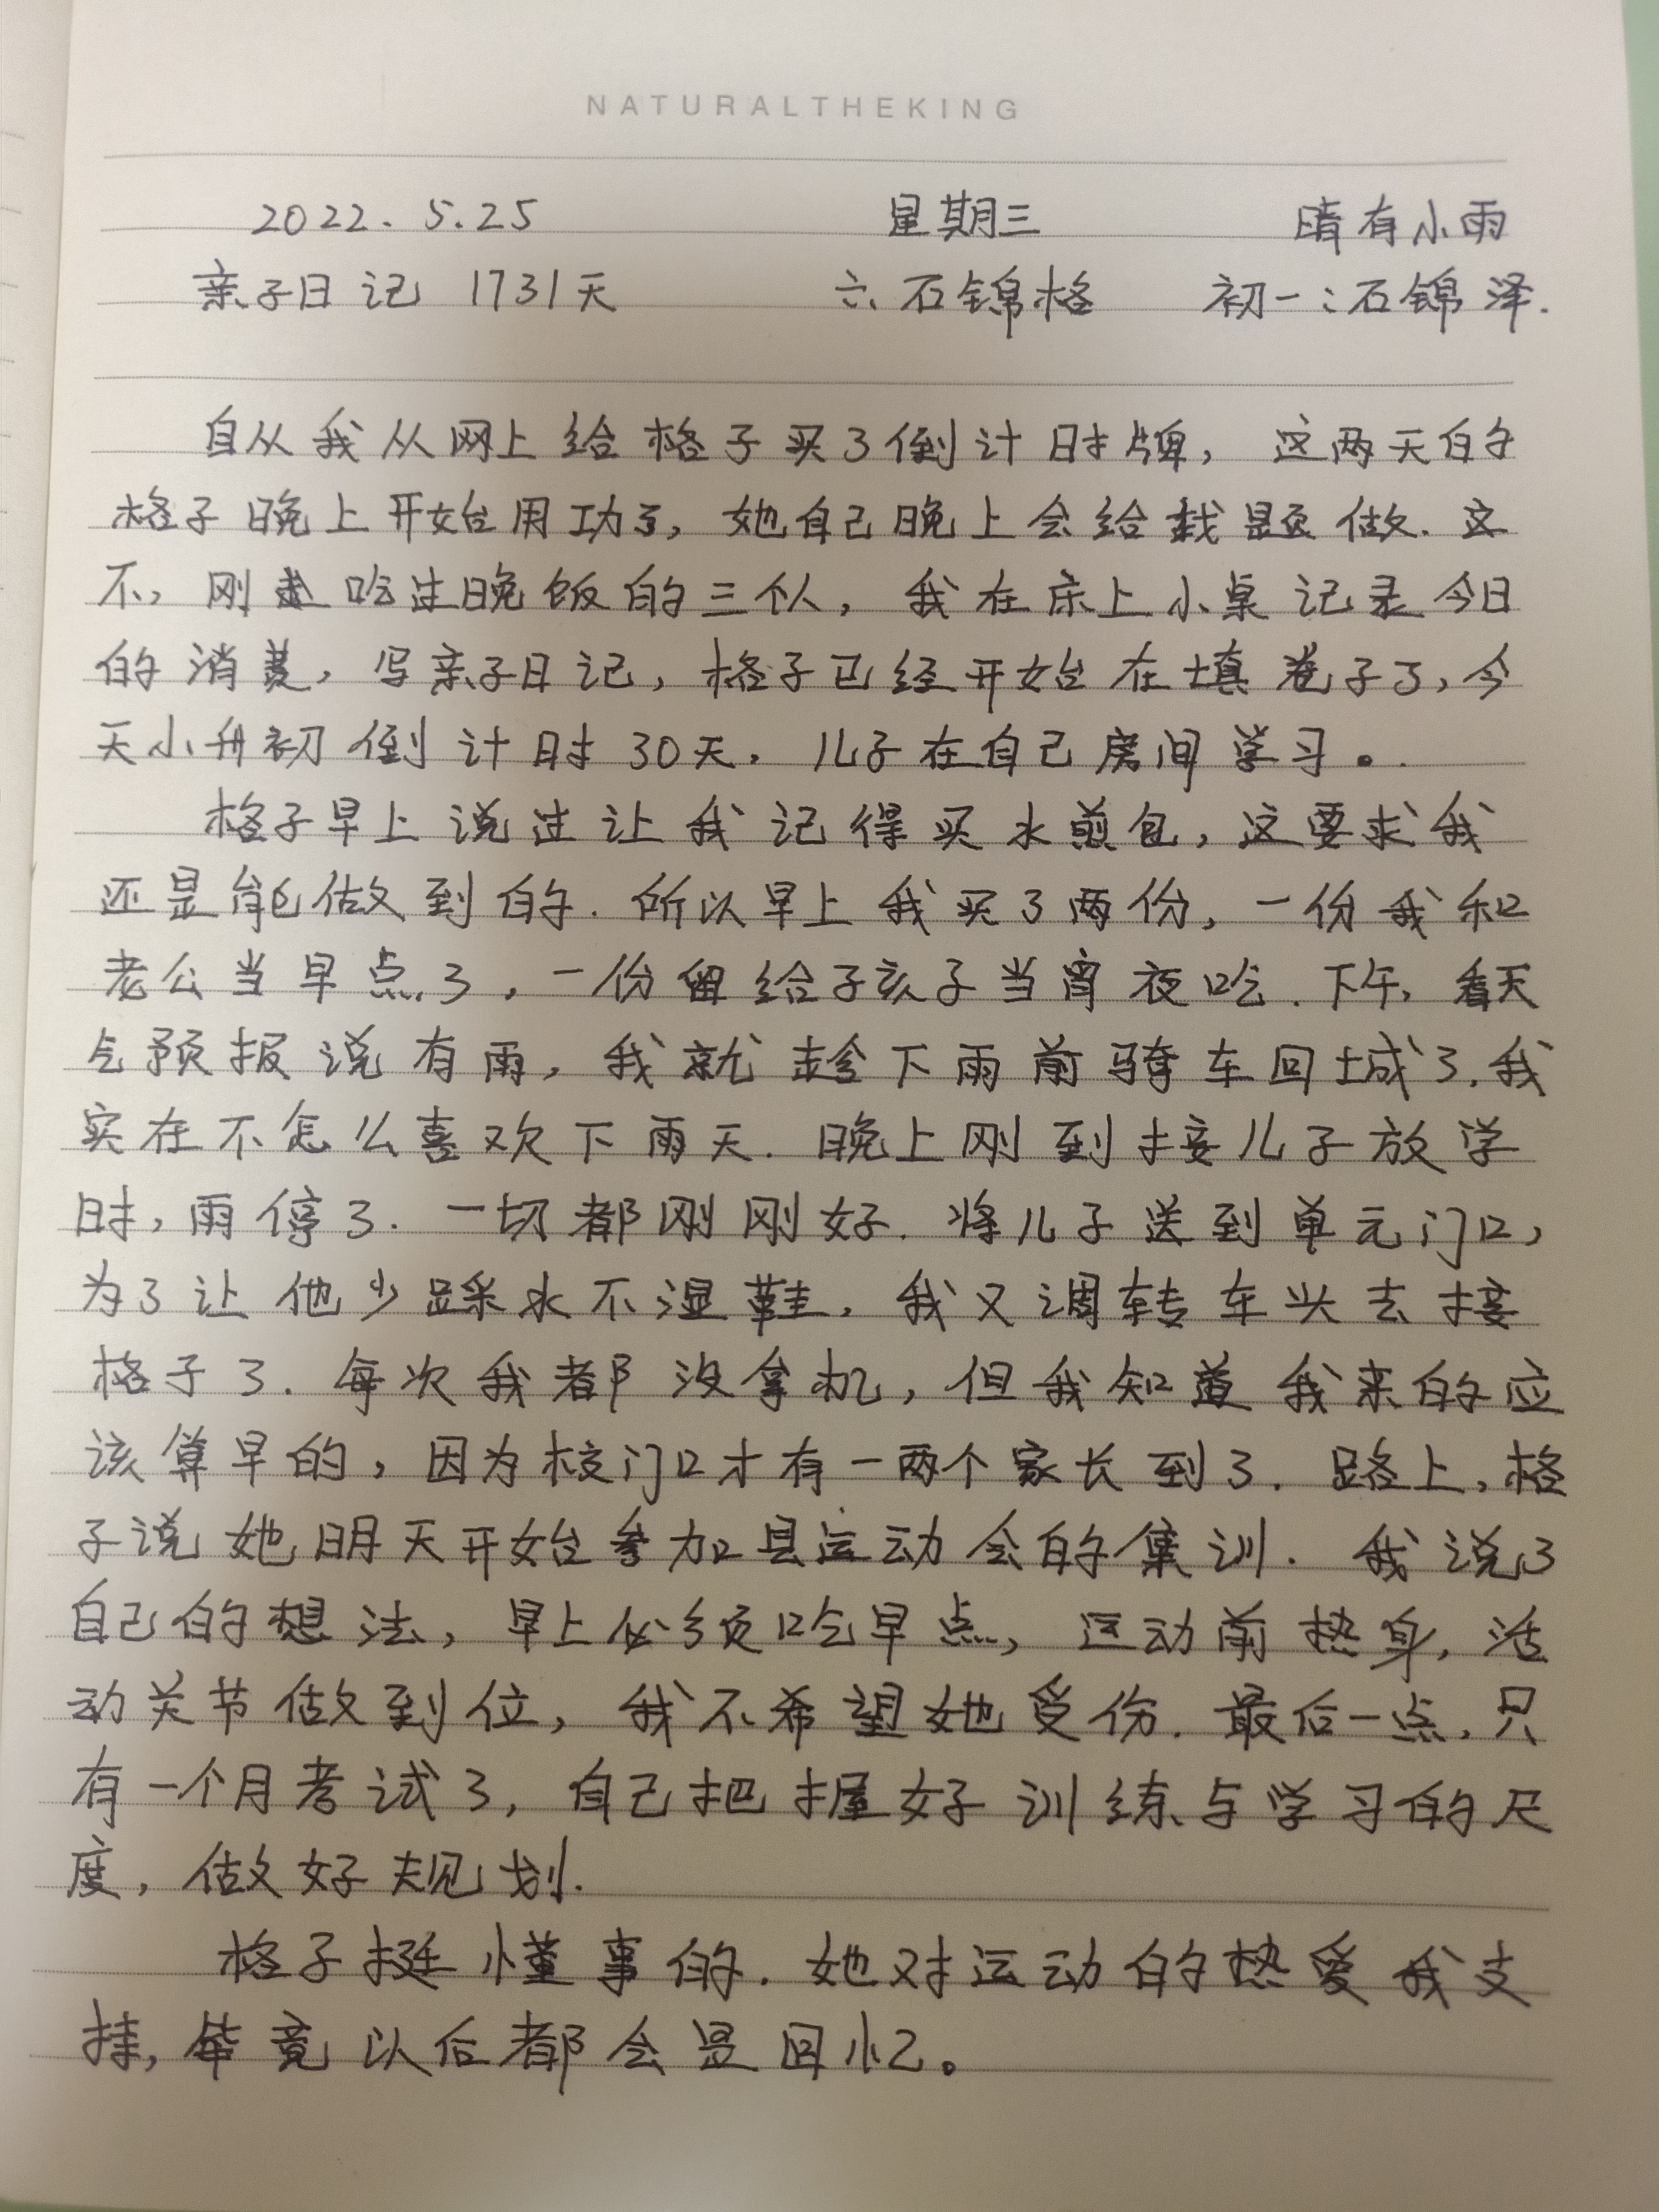 NATURALTHEKING
2022.5.25 星期三 晴有小雨
亲子日记 1731天 六.石锦格 初一:石锦泽.
自从我从网上给格子买了倒计时牌, 这两天的
格子晚上开始用功了, 她自己晚上会给找题做. 这
不, 刚走吃过晚饭的三个人, 我在床上小桌记录今日
的消费, 写亲子日记, 格子已经开始在填卷子了, 今
天小升初倒计时30天. 儿子在自己房间学习。.
格子早上说过让我记得买水煎包, 这要求我
还是能做到的. 所以早上我买了两份, 一份我和
老公当早点了, 一份留给子孩子当宵夜吃. 下午, 看天
气预报说有雨, 我就趁下雨前骑车回城了. 我
实在不怎么喜欢下雨天. 晚上刚到接儿子放学
时, 雨停了. 一切都刚刚好. 将儿子送到单元门口,
为了让他少踩水不湿鞋, 我又调转车头去接
格子了. 每次我都没拿机, 但我知道我来的应
该算早的, 因为校门口才有一两个家长到了. 路上, 格
子说她明天开始参加县运动会的集训. 我说了
自己的想法, 早上必须吃早点, 运动前热身, 活
动关节做到位, 我不希望她受伤. 最后一点, 只
有一个月考试了, 自己把握好训练与学习的尺
度, 做好规划.
格子挺懂事的. 她对运动的热爱我支
持, 毕竟以后都会是回忆。